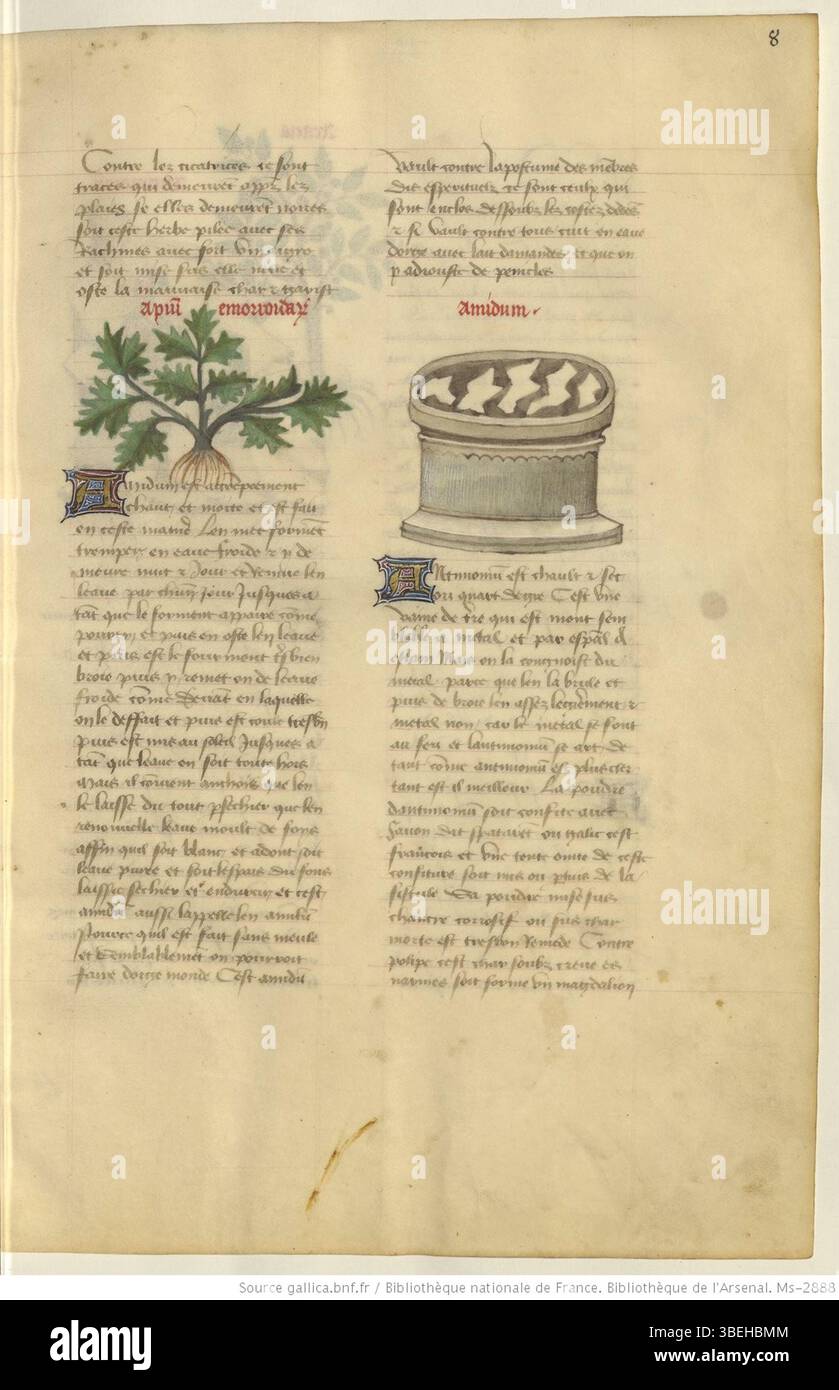 8
Contre les cicatrices ce sont
traces qui demeurẽt appẓ les
plaies se elles demeurẽt noires
soit ceste herbe pilee avec ses
Rachines avec fort vin aigre
et soit mise sus elle
oste la mauuaise char
Apiũ emorroidaꝝ
Amidum est
chaut et moite et est fait
en ceste Len met formẽt
tremper en eaue froide ⁊ y de
meure nuit ⁊ Jour et Remue len
leaue par chũn jour Jusques a
tãt que le forment appaire cõme
pourry et puis en oste len leaue
et puis est le fourment tres bien
broie puis y remet on de leaue
froide cõme deuãt en laquelle
on le deffait et puis est coule tresbñ
puis est mis au soleil Jusques a
tãt que leaue en soit toute hors
Mais il conuient anchois que len
le laisse du tout sechier que len
renouuelle leaue moult de foys
affin quil soit blanc et adont soit
leaue puree et soit lespais du fons
laissie sechier et endurcir et cest
amidũ aussi lappelle len amidũ
pource quil est fait sans meule
et semblablemẽt on pourroit
faire dorge monde Cest amidũ
vault contre lapostume des mẽbres
dis esperituelz ce sont ceulx qui
sont enclos dessoubz les costes dedẽs
⁊ si vault contre tous cuit en eaue
dorge avec lait damandes et que on
y adiouste de penides
Amidum
Antimoniũ est chault ⁊ sec
ou quart degre Cest vne
vaine de tẽre qui est mout sem
blable a metal et par
on la congnoist du
metal parce que len la brule et
puis se broie len assez legierement ⁊
metal non car le metal se font
au feu et lantimoniũ se art de
tant cõme antimoniũ est plus cler
tant est il meilleur La pouldre
dantimoniũ soit confite auec
sauon dit spatarẽt ou galic cest
francois et vne tente ointe de ceste
confiture soit mis ou ptuis de la
fistule Sa pouldre mise sus
chancre corrosif ou sus char
morte est tresbon Remede Contre
polipe cest char soubz crene es
narines soit forme vn magdalion
alamy
alamy
alamy
a
a
a
a
a
a
a
Source gallica.bnf.fr / Bibliothèque nationale de France. Bibliothèque de l'Arsenal. Ms-2888
alamy
Image ID: 3BEHBMM
www.alamy.com